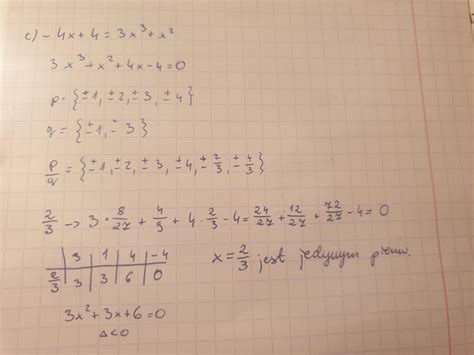 c) - 4x + 4 = 3x³ + x²
3x³ + x² + 4x - 4 = 0
p = {±1, ±2, ±3, ±4}
q = {±1, ±3}
p/q = {±1, ±2, ±3, ±4, ±2/3, ±4/3}
2/3 → 3 · 8/27 + 4/9 + 4 · 2/3 - 4 = 24/27 + 12/27 + 72/27 - 4 = 0
3 | 1 | 4 | -4
2/3 | 3 | 3 | 6 | 0
x = 2/3 jest jedynym
3x² + 3x + 6 = 0
Δ < 0